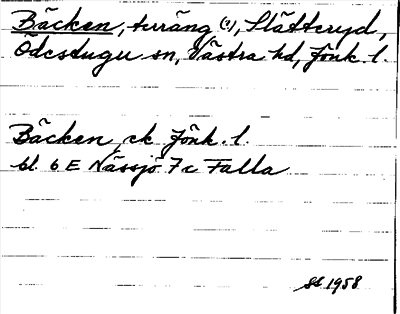 Bäcken, terräng (?), Slätteryd,
Ödestugu sn, Västra hd, Jönk. l.
Bäcken, ek Jönk. l.
bl. 6 E Nässjö 7 c Falla
1958